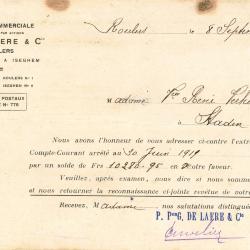 MMERCIALE
PAR ACTIONS
AERE & Cie
LERS
A ISEGHEM
ROULERS No 1
ISEGHEM No 6
POSTAUX
No 775
Roulers le 8 Septem
Madame Vve René
Staden
Nous avons l'honneur de vous adresser ci-contre l'extr
Compte-Courant arrêté au 30 Juin 1919
par un solde de Frs 10280-95 en faveur.
Veuillez, après examen, nous dire si nous somme
et nous retourner la reconnaissance ci-jointe revêtue de votre
Recevez, Madame, nos salutations distingué
P. Pon G. DE LAERE & Cie